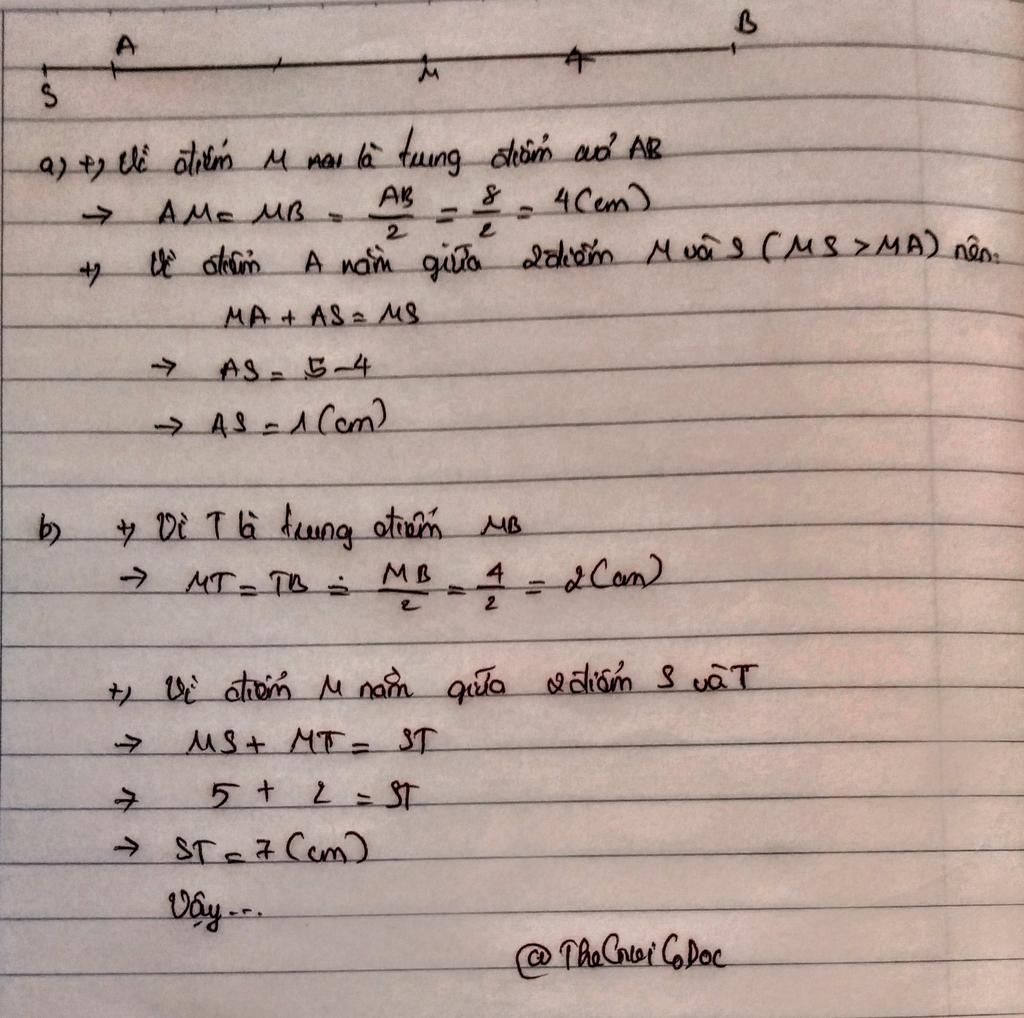 A B
S M T
a) +, Vì điểm M là trung điểm của AB
→ AM = MB = AB/2 = 8/2 = 4 (cm)
+, Vì điểm A nằm giữa 2 điểm M và S (MS > MA) nên:
MA + AS = MS
→ AS = 5-4
→ AS = 1 (cm)
b) +, Vì T là trung điểm MB
→ MT = TB = MB/2 = 4/2 = 2 (cm)
+, Vì điểm M nằm giữa 2 điểm S và T
→ MS + MT = ST
→ 5 + 2 = ST
→ ST = 7 (cm)
Vậy ....